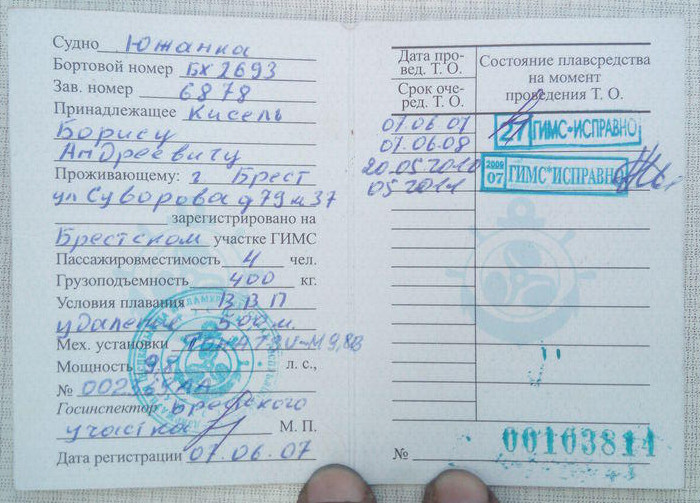 Судно Южанка
Бортовой номер БХ 2693
Зав. номер 6878
Принадлежащее Кисель
Борису
Андреевичу
Проживающему: г. Брест
ул Суворова д 79 к 37
зарегистрировано на
Брестском участке ГИМС
Пассажировместимость 4 чел.
Грузоподъемность 400 кг.
Условия плавания ВВП
удаление 500 м.
Мех. установки М 9,8В
Мощность 9,8 л. с.,
№
Госинспектор Брестского
участка М. П.
Дата регистрации 07.06.07
Дата про-
вед. Т. О.
Срок оче-
ред. Т. О.
Состояние плавсредства
на момент
проведения Т. О.
07.06 07
07.06.08
21 ГИМС*ИСПРАВНО
20.05 2010
05 2011
2009
07 ГИМС*ИСПРАВНО
№ 00103814